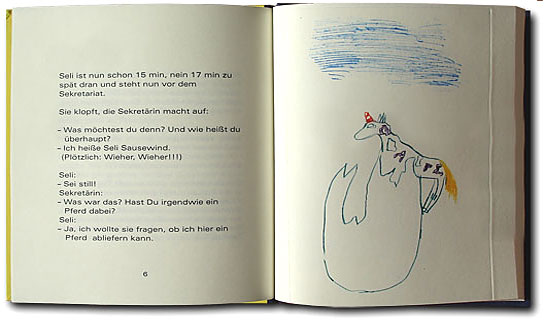 Seli ist nun schon 15 min, nein 17 min zu
spät dran und steht nun vor dem
Sekretariat.
Sie klopft, die Sekretärin macht auf:
– Was möchtest du denn? Und wie heißt du
überhaupt?
– Ich heiße Seli Sausewind.
(Plötzlich: Wieher, Wieher!!!)
Seli:
– Sei still!
Sekretärin:
– Was war das? Hast Du irgendwie ein
Pferd dabei?
Seli:
– Ja, ich wollte sie fragen, ob ich hier ein
Pferd abliefern kann.
6